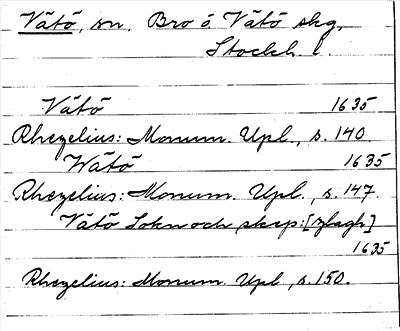 Vätö, sn. Bro o Vätö skg,
Stockh. l.
Vätö 1635
Rhezelius: Monum. Upl., s. 140.
Wätö 1635
Rhezelius: Monum. Upl., s. 147.
Vätö Sokn och skep:
1635
Rhezelius: Monum. Upl., s. 150.